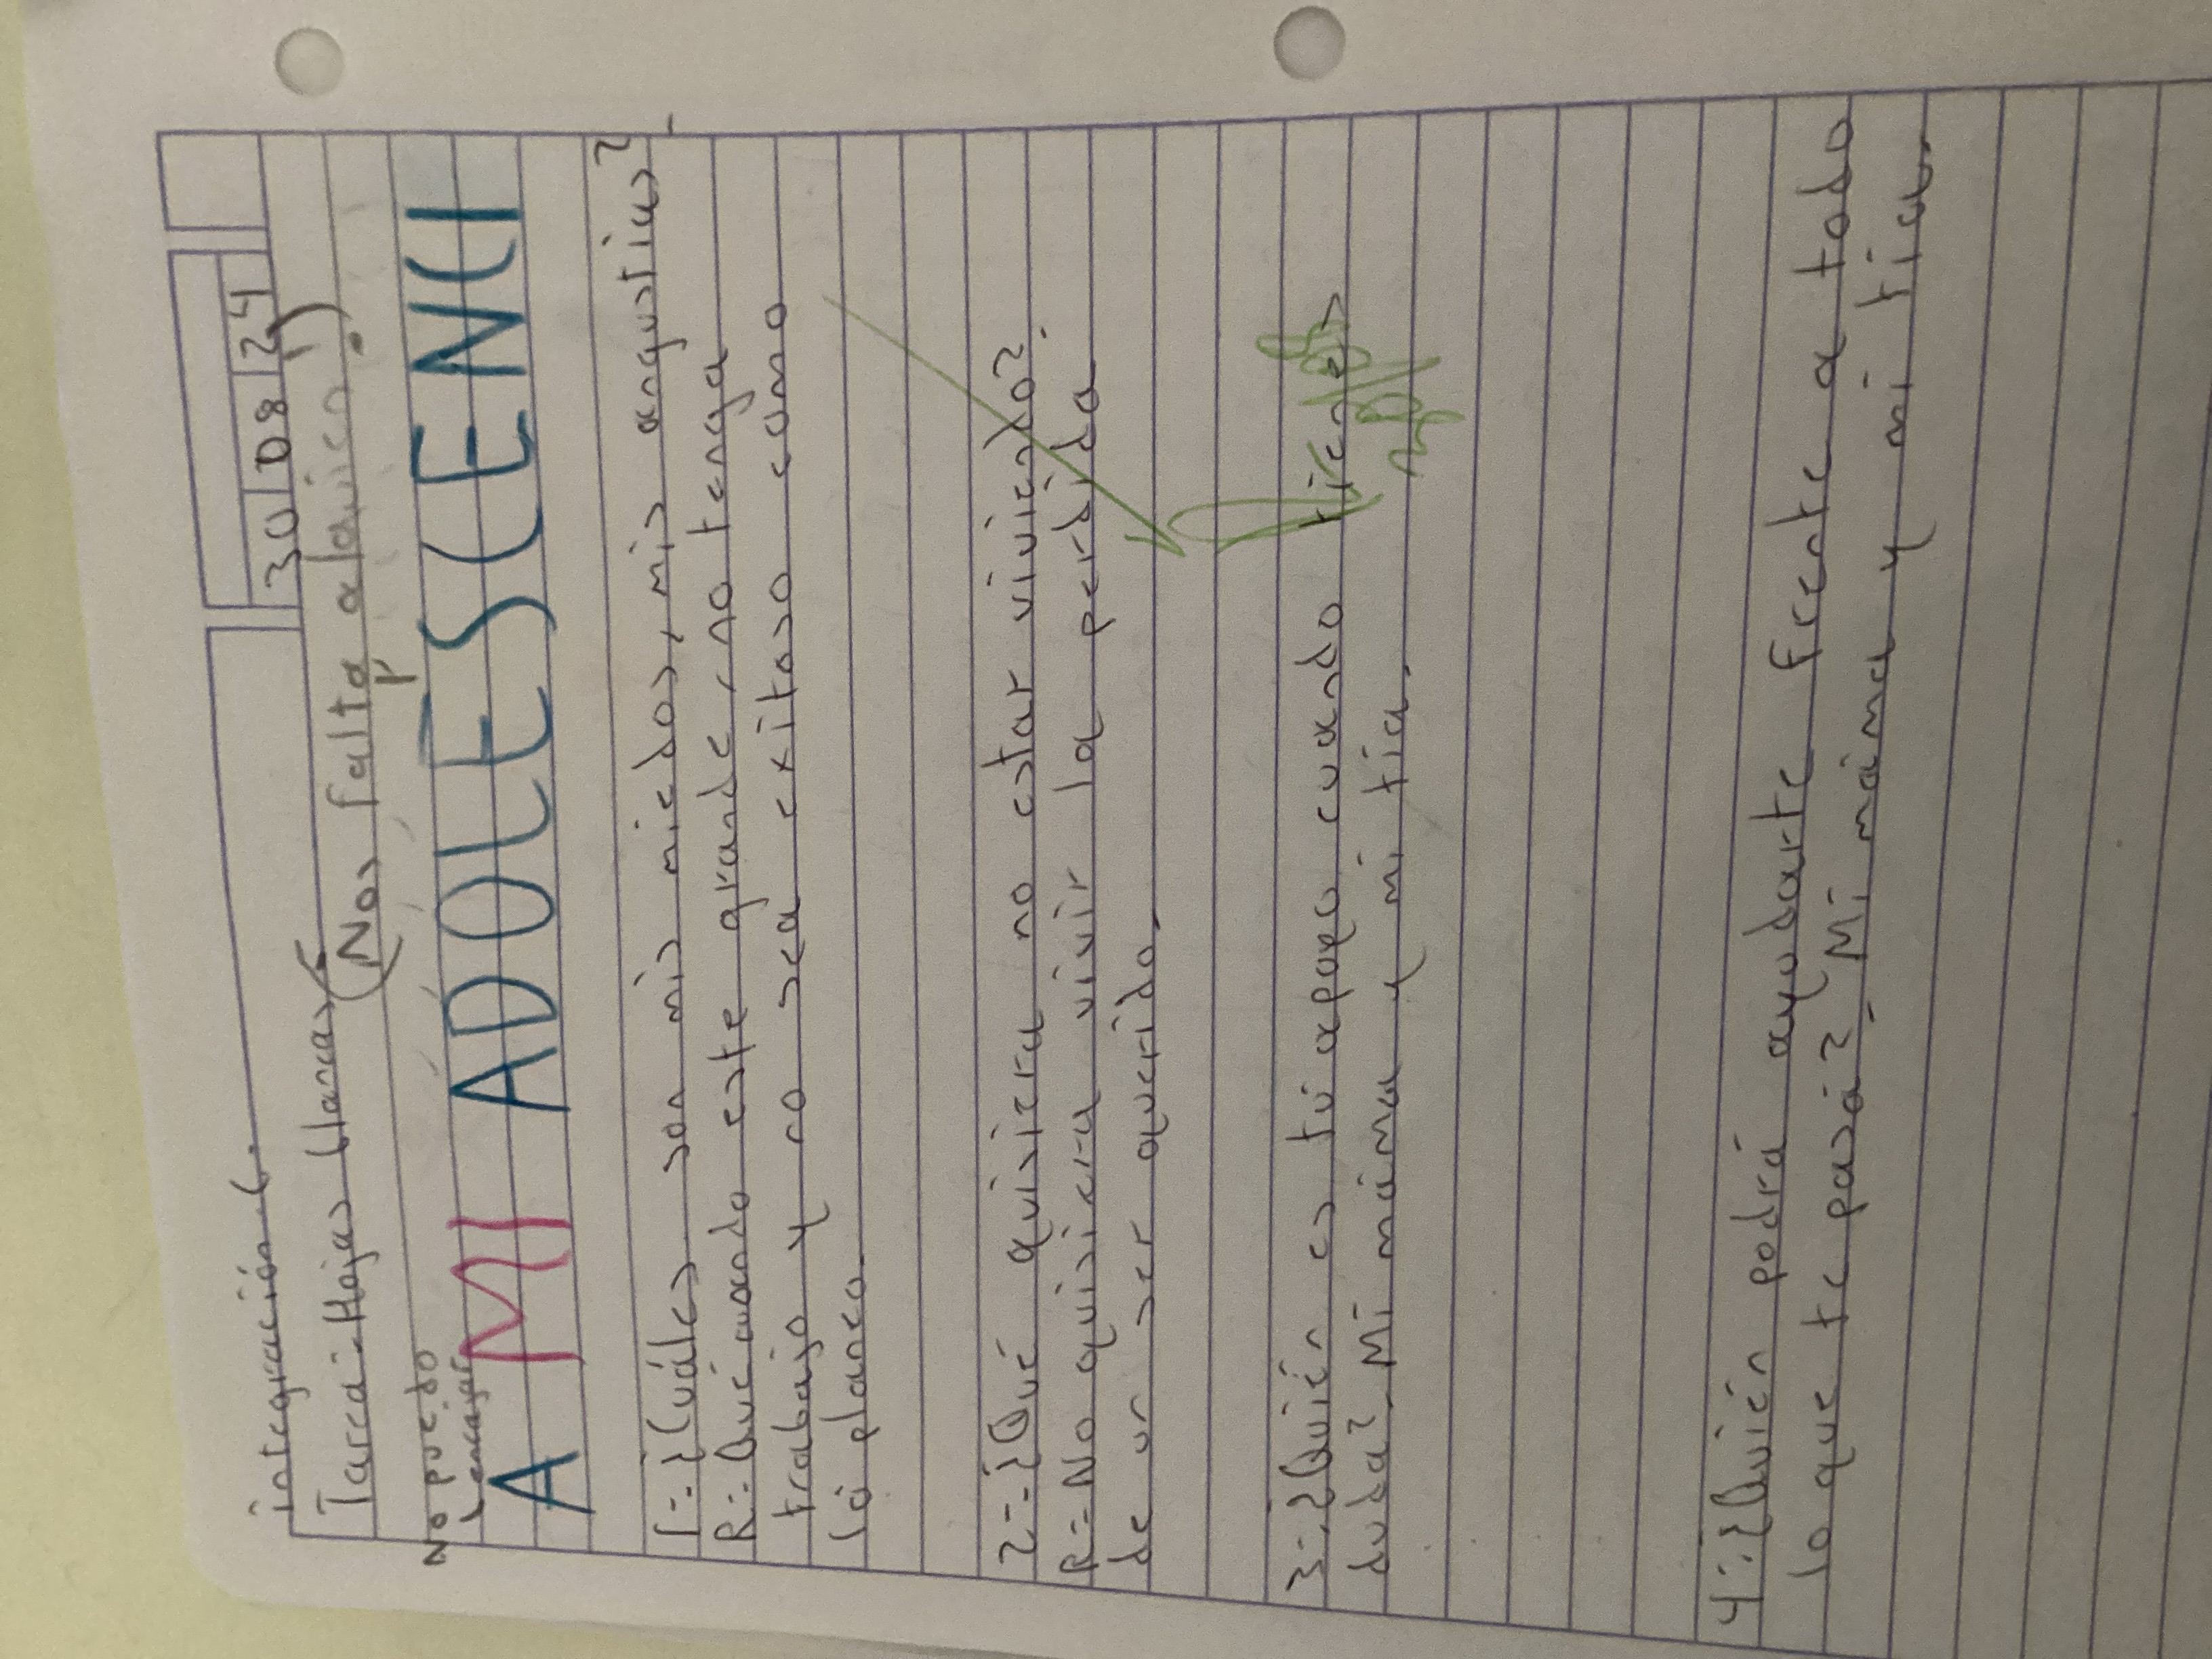 30 08 24
integración 6.
Tarea: Hojas blancas
(Nos falta alguien.)
No puedo
encajar
A MI ADOLESCENCI
1.-¿Cuáles son mis miedos, mis angustias?
R:- Qué cuando este grande, no tenga
trabajo y no sea exitoso como
lo planeo.
2.-¿Qué quisiera no estar viviendo?
R:- No quisiera vivir la perdida
de un ser querido.
3.-¿Quién es tú apoyo cuando tienes
duda? Mi máma y mi tia.
4.-¿Quién podrá ayudarte frente a todo
lo que te pasá? Mi máma y mi tia.